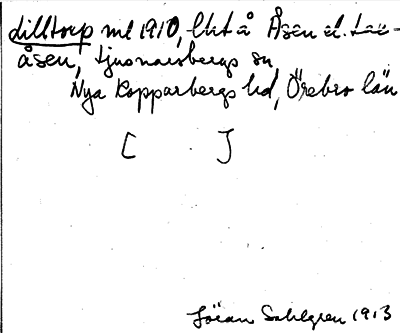 Lilltorp ml 1910, lht å Åsen el. Lax-
åsen, Ljusnarsbergs sn
Nya Kopparbergs hd, Örebro län
[ ]
Jöran Sahlgren 1913